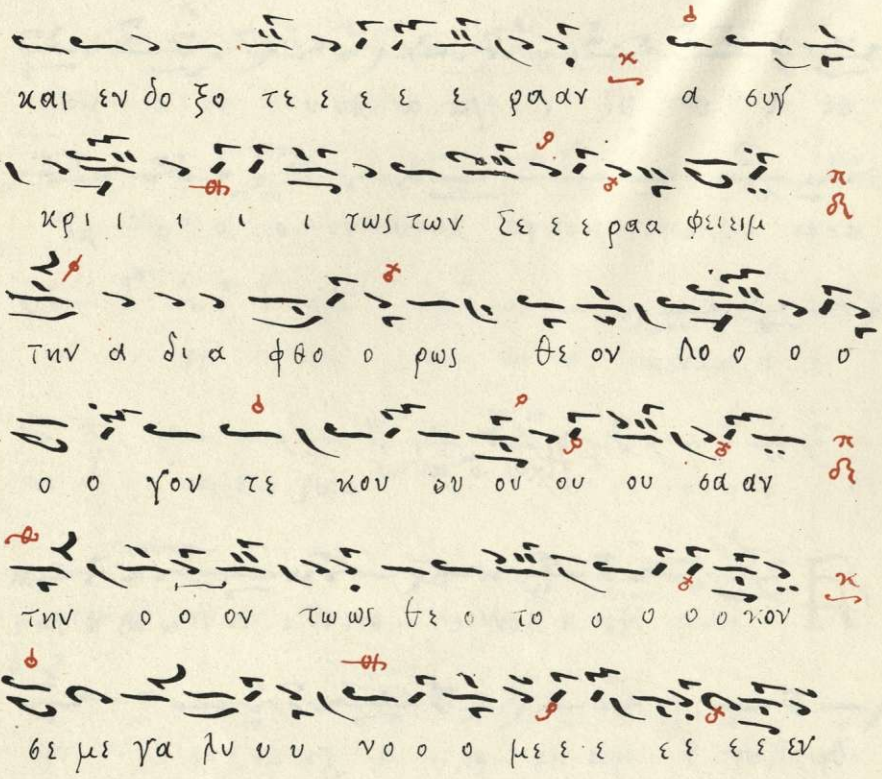 και εν δο ξο τε ε ε ε ε ρα αν α συγ
κρι ι ι ι ι τως των Σε ε ε ραα φειειμ
την α δι α φθο ο ρως θε ον Λο ο ο ο
ο ο γον τε κου ου ου ου ου σα αν
την ο ο ον τω ως θε ο το ο ο ο ο κον
σε με γα λυ υ υ νο ο ο με ε ε ε ε ε ε εν